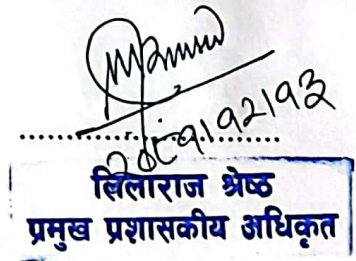 २०८१।१२।१३
लिलाराज श्रेष्ठ
प्रमुख प्रशासकीय अधिकृत